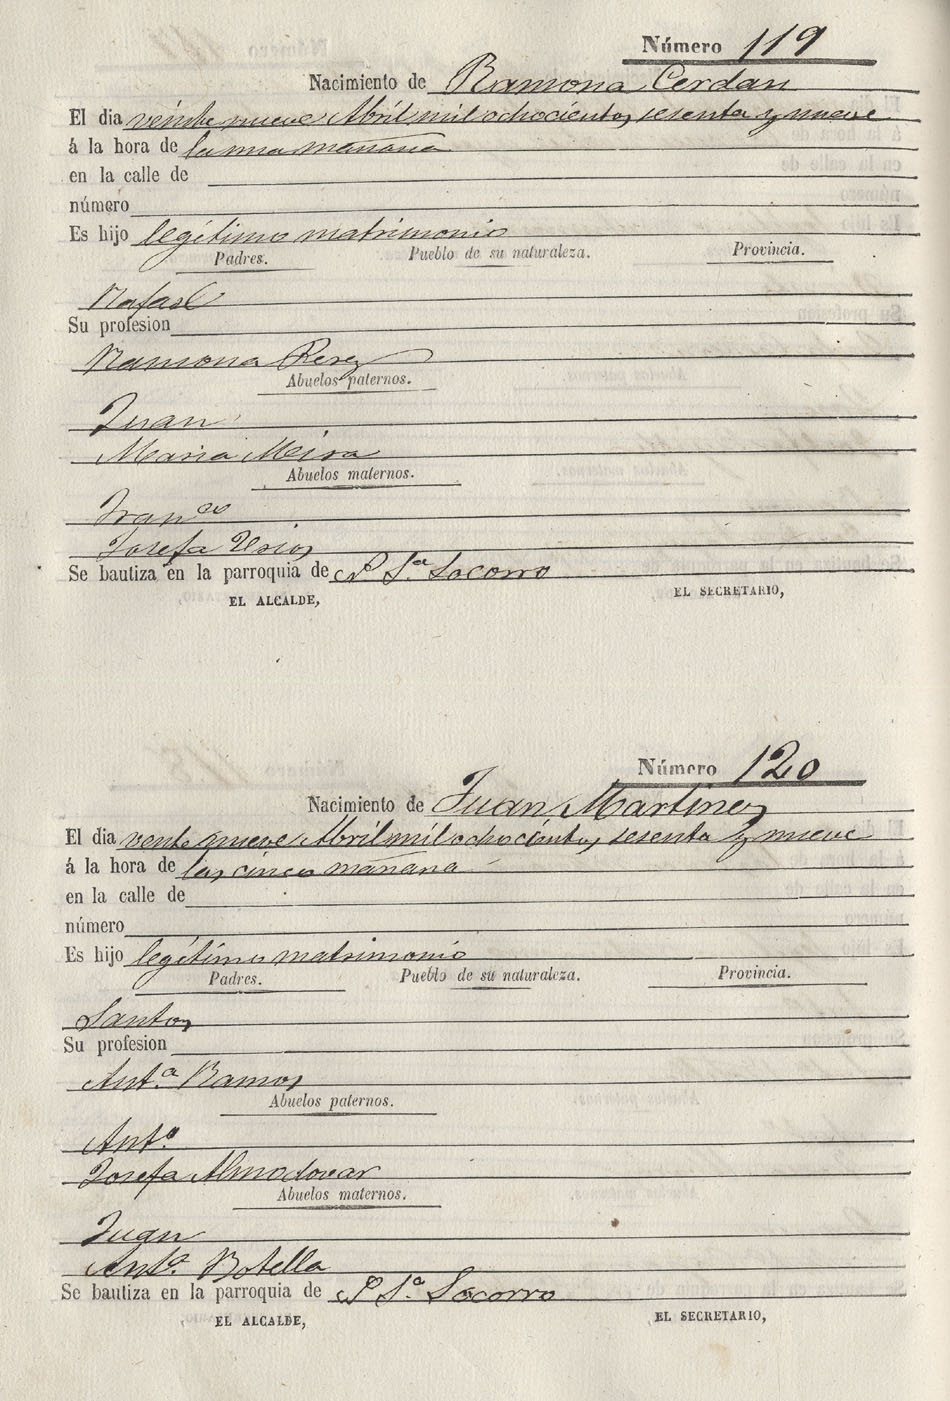 Número 119
Nacimiento de Ramona Cerdan
El dia veinte nueve Abril mil ochocientos sesenta y nueve
á la hora de la una mañana
en la calle de
número
Es hijo legítimo matrimonio
Padres. Pueblo de su naturaleza. Provincia.
Rafael
Su profesion
Ramona Perez
Abuelos paternos.
Juan
Maria Mira
Abuelos maternos.
Franco
Josefa Usios
Se bautiza en la parroquia de Sª Socorro
EL ALCALDE, EL SECRETARIO,
Número 120
Nacimiento de Juan Martinez
El dia veinte nueve Abril mil ochocientos sesenta y nueve
á la hora de las cinco mañana
en la calle de
número
Es hijo legítimo matrimonio
Padres. Pueblo de su naturaleza. Provincia.
Santos
Su profesion
Antª Ramos
Abuelos paternos.
Antº
Josefa Almodovar
Abuelos maternos.
Juan
Antª Botella
Se bautiza en la parroquia de Sª Socorro
EL ALCALDE, EL SECRETARIO,